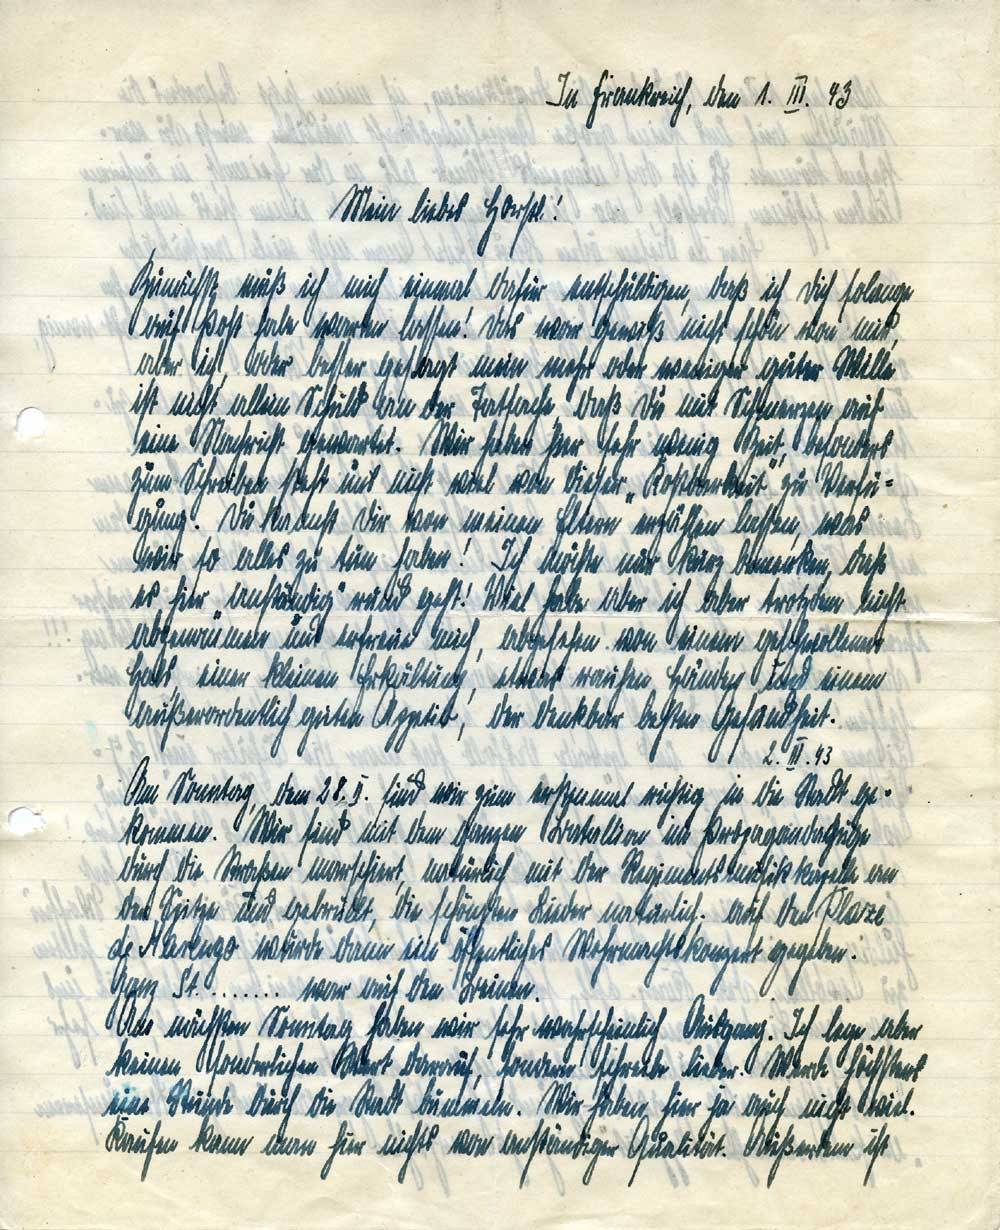 In Frankreich, den 1. III. 43
Mein liebes Horstl!
Zunächst muß ich mich einmal dafür entschuldigen, daß ich Dich solange
auf Post habe warten lassen! Das war gewiß nicht schön von mir,
aber ich, oder besser gesagt mein mehr oder weniger guter Wille
ist nicht allein Schuld an der Tatsache, daß Du mit Schmerzen auf
eine Nachricht gewartet. Wir haben hier sehr wenig Zeit, besonders
zum Schreiben steht uns nicht viel von dieser „Kostbarkeit" zu Verfü=
gung. Du kannst Dir von meinen Eltern erzählen lassen, was
wir so alles zu tun haben! Ich möchte nur kurz bemerken, daß
es hier „anständig" rund geht! Viel habe aber ich aber trotzdem nicht
abgenommen und erfreue mich, abgesehen von einem geschwollenen
Hals, einer kleinen Erkältung, etwas rauhen Händen und einem
außerordentlich guten Appetit, der denkbar besten Gesundheit.
2. III. 43
Am Sonntag, dem 28. II. sind wir zum erstenmal richtig in die Stadt ge-
kommen. Wir sind mit dem ganzen Bataillon im Propagandazuge
durch die Straßen marschiert, natürlich mit der Regimentsmusikkapelle an
der Spitze und gebrüllt, die schönsten Lieder natürlich. Auf dem Plaze
de Marengo wurde dann ein öffentliches Wehrmachtskonzert gegeben.
Ganz St. ........ war auf den Beinen.
Am nächsten Sonntag haben wir sehr wahrscheinlich Ausgang. Ich lege aber
keinen sonderlichen Wert darauf, sondern schreibe lieber. Werde höchstens
eine Stunde durch die Stadt bummeln. Wir haben hier ja auch nicht viel.
Kaufen kann man hier nichts von anständiger Qualität. Außerdem ist